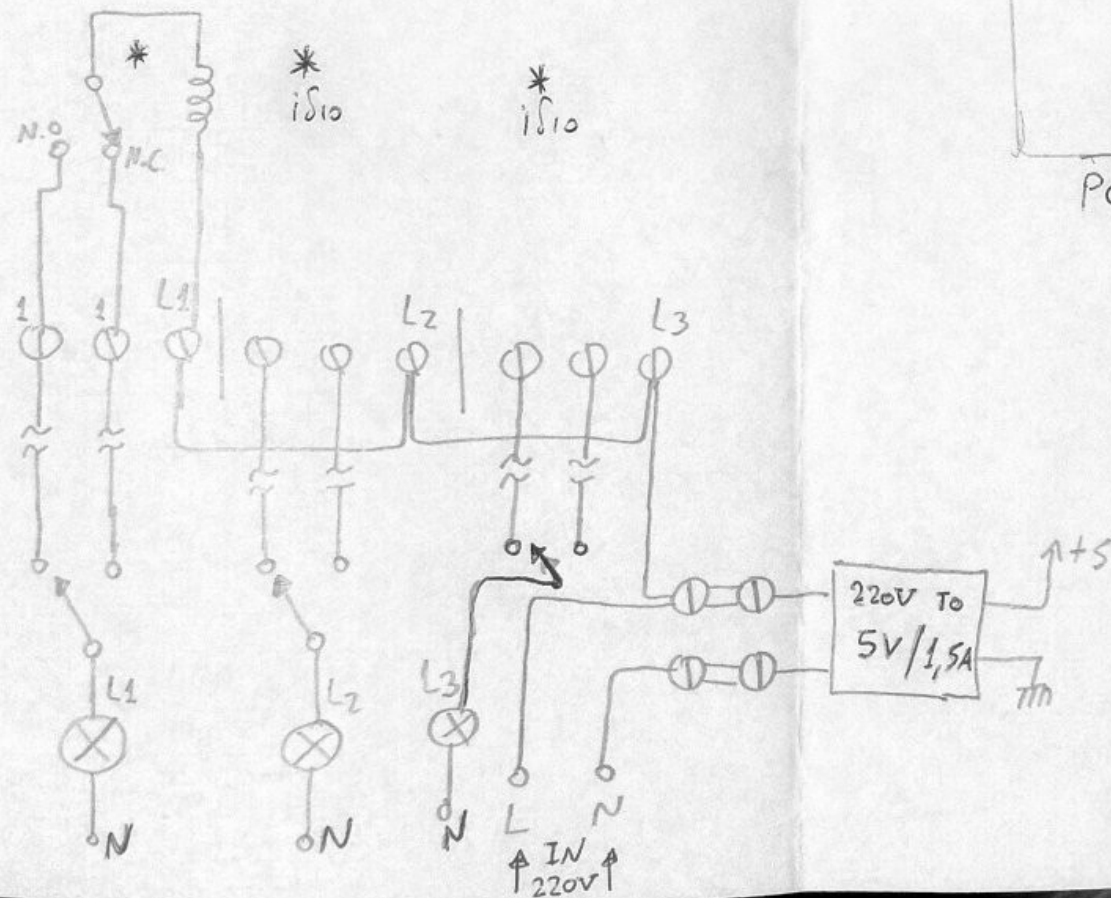 *
*
ίδιο
*
ίδιο
N.O
N.C
PO
1
1
L1
L2
L3
220V TO
5V/1,5A
+5
L1
L2
L3
N
N
N
L
N
IN
220V